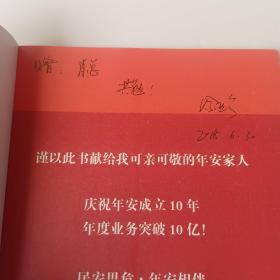 共勉!
2018.6.30
谨以此书献给我可亲可敬的年安家人
庆祝年安成立10年
年度业务突破10亿!
民安思危·年安相伴